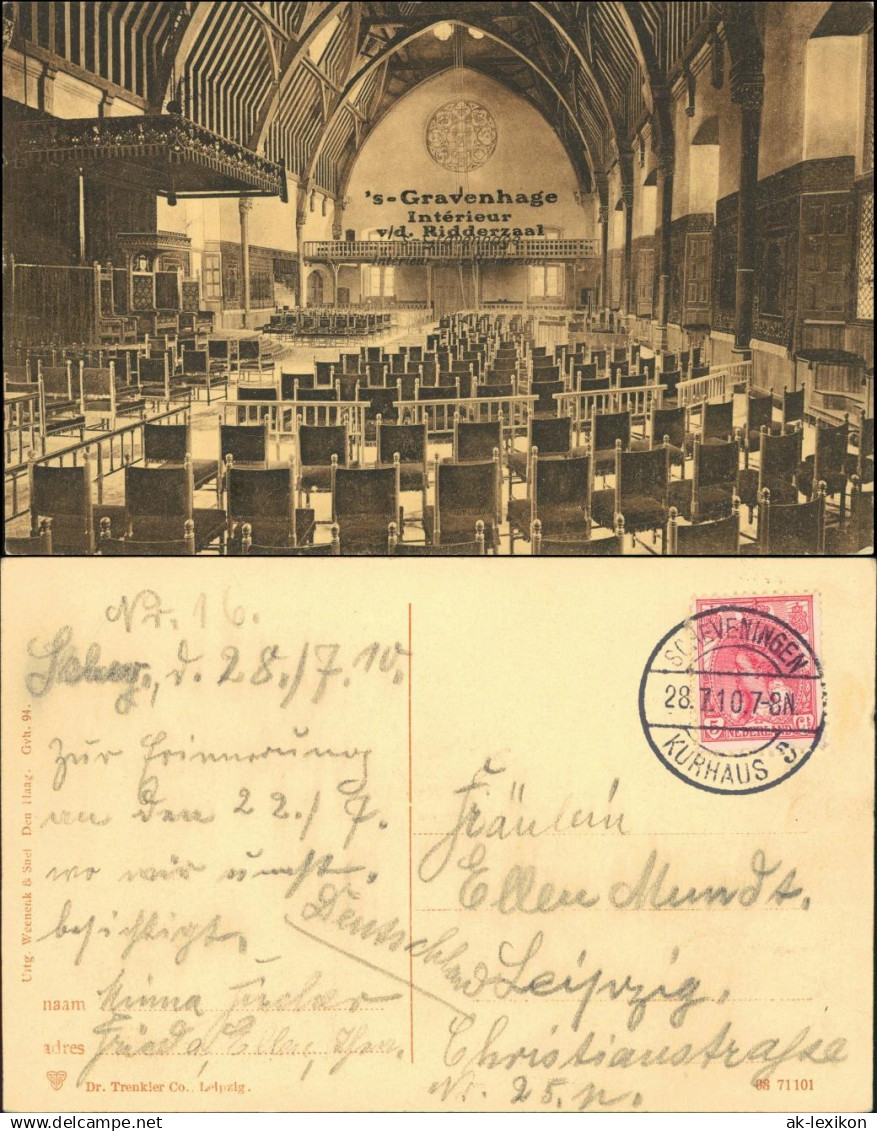 's-Gravenhage
Intérieur
v/d. Ridderzaal
Nr. 16.
d. 28./7.10.
Zur Erinnerung
an den 22./7.
wo wir
besichtigt.
naam Minna
adres
Uitg. Weenenk & Snel Den Haag. Gvh. 94.
Dr. Trenkler Co., Leipzig.
SCHEVENINGEN
28.7.10.7-8N
KURHAUS
5 Ct
NEDERLAND
Fräulein
Ellen Mundt.
Deutschland
Leipzig.
Christianstraße
Nr. 25. p.
08 71101
ak-lexikon